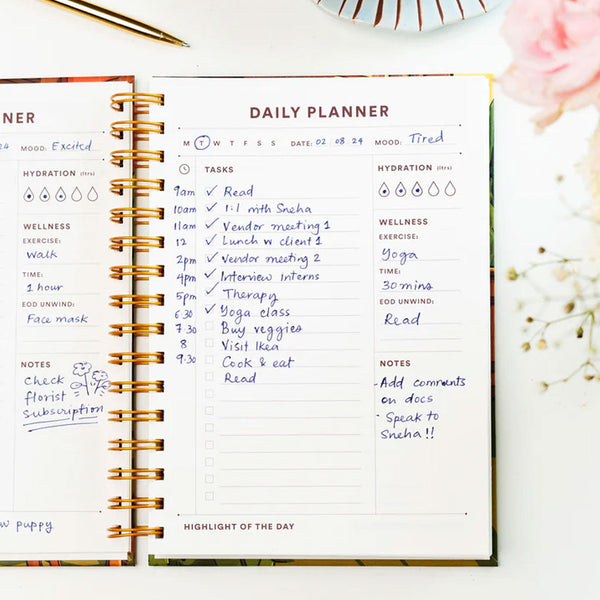 NER
24 MOOD: Excited
HYDRATION (ltrs)
WELLNESS
EXERCISE:
Walk
TIME:
1 hour
EOD UNWIND:
Face mask
NOTES
Check
florist
subscription
w puppy
DAILY PLANNER
M T W T F S S DATE: 02 08 24 MOOD: Tired
TASKS
9am Read
10am 1:1 with Sneha
11am Vendor meeting 1
12 Lunch w client 1
2pm Vendor meeting 2
4pm Interview Interns
5pm Therapy
6.30 Yoga class
7.30 Buy veggies
8 Visit Ikea
9.30 Cook & eat
Read
HYDRATION (ltrs)
WELLNESS
EXERCISE:
Yoga
TIME:
30 mins
EOD UNWIND:
Read
NOTES
- Add comments
on docs
- Speak to
Sneha!!
HIGHLIGHT OF THE DAY